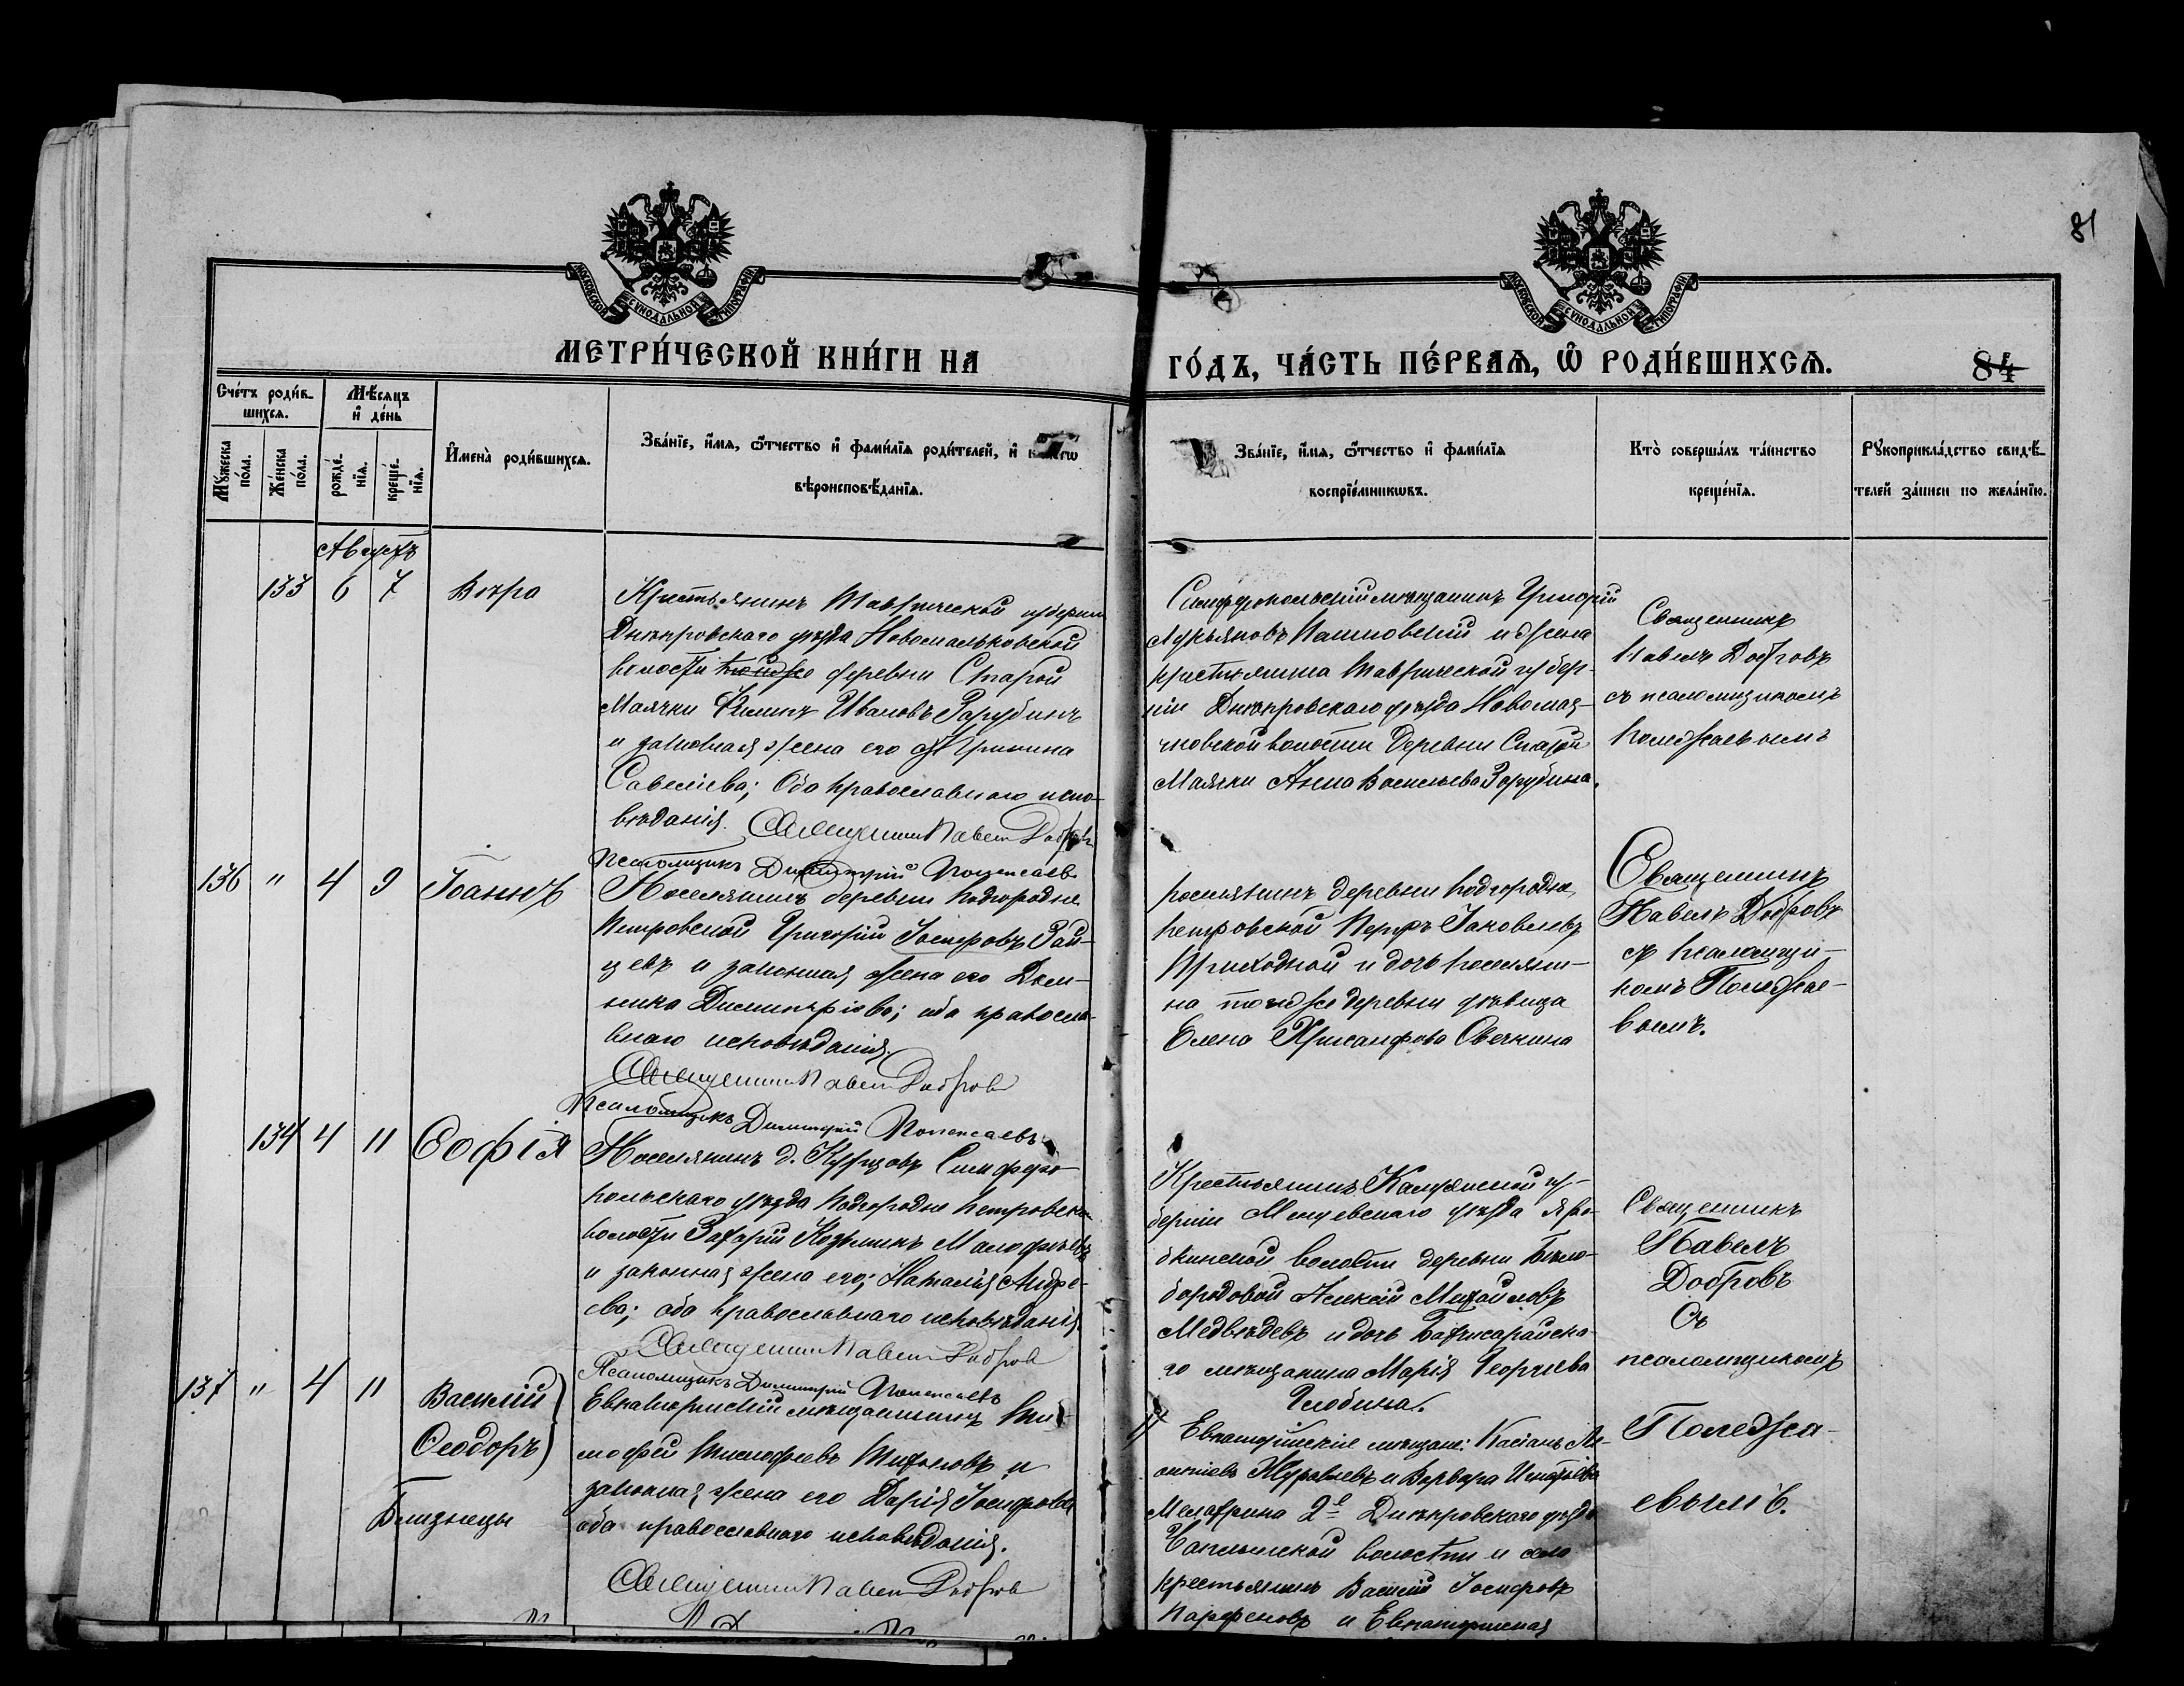 81
МОСКОВСКОЙ СѴНОДАЛЬНОЙ ТИПОГРАФІИ
МОСКОВСКОЙ СѴНОДАЛЬНОЙ ТИПОГРАФІИ
МЕТРИ́ЧЕСКОЙ КНИ́ГИ НА
ГО́ДЪ, ЧА́СТЬ ПЕ́РВАѦ, Ѿ РОДИ́ВШИХСѦ.
84
Сче́тъ роди́в-
шихсѧ.
Мꙋ́жеска
по́ла.
Же́нска
по́ла.
Мѣ́сѧцъ
и҆ де́нь
рожде́-
нїѧ.
креще́-
нїѧ.
И҆мена̀ роди́вшихсѧ.
Зва́нїе, и҆́мѧ, ѻ҆́тчество и҆ фами́лїѧ роди́телей, и҆
вѣроисповѣ́данїѧ.
Зва́нїе, и҆́мѧ, ѻ҆́тчество и҆ фами́лїѧ
воспрїе́мникѡвъ.
Кто̀ соверша́лъ та́инство
креще́нїѧ.
Рꙋкоприкла́дство свидѣ́-
телей за́писи по жела́нїю.
Августъ
133 6 7 Вѣра
Крестьянинъ Таврической губерніи
Днѣпровскаго уѣзда
волости деревни Старой
Маячки Филипъ Ивановъ Зарубинъ
и законная жена его
Савеліева; оба православнаго испо-
вѣданія. Священникъ Павелъ Добровъ
Псаломщикъ Димитрій
Симферопольскій мѣщанинъ Григорій
Лукьяновъ и жена
крестьянина Таврической губер-
ніи Днѣпровскаго уѣзда Новомая-
чковской волости деревни Старой
Маячки Анна Васильева Зарубина.
Священникъ
Павелъ Добровъ
съ псаломщикомъ
Полежаевымъ
136 " 4 9 Іоаннъ
Поселянинъ деревни Подгородне
Петровской Григорій Іосифовъ Зай-
цевъ и законная жена его Дом-
ника Димитріева; оба правосла-
внаго исповѣданія.
Священникъ Павелъ Добровъ
Псаломщикъ Димитрій Полежаевъ
поселянинъ деревни Подгородне
Петровской Петръ Іаковлевъ
Приходной и дочь поселяни-
на той же деревни дѣвица
Елена Хрисанфова Овечкина
Священникъ
Павелъ Добровъ
съ псаломщи-
комъ Полежае-
вымъ.
134 4 11 Софія
Поселянинъ д. Курцовъ Симферо-
польскаго уѣзда Подгородне Петровской
волости Захарій Козьминъ Малофѣевъ
и законная жена его; Наталія Андре-
ева; оба православнаго исповѣданія.
Священникъ Павелъ Добровъ
Псаломщикъ Димитрій Полежаевъ
Крестьянинъ Калужской гу-
берніи уѣзда
волости деревни Бѣло-
бородовой Алексій Михайловъ
Медвѣдевъ и дочь Бахчисарайска-
го мѣщанина Марія Георгіева
Глобина.
Священникъ
Павелъ
Добровъ
Съ
псаломщикомъ
Полежа-
евымъ.
137 " 4 11 Василій
Ѳеодоръ
Близнецы
Евпаторійскій мѣщанинъ Ти-
мофей Тимофеевъ и
законная жена его Дарія Іосифова
оба православнаго исповѣданія.
Священникъ Павелъ Добровъ
Евпаторійскіе мѣщане: Касіанъ
Журавлевъ и Варвара Игнатіева
2е Днѣпровскаго уѣзда
волости и села
крестьянинъ Василій Іосифовъ
Парфеновъ и Евпаторійская